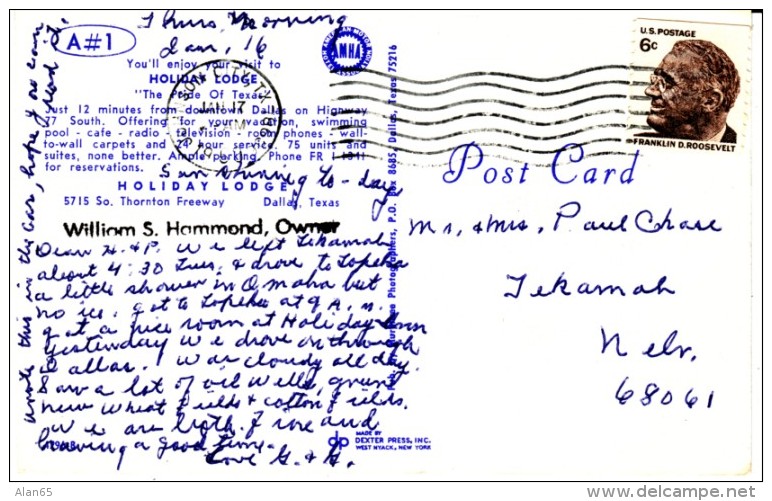 Thurs, Morning
Jan, 16
A#1
You'll enjoy your visit to
HOLIDAY LODGE
"The Pride Of Texas"
Just 12 minutes from downtown Dallas on Highway
77 South. Offering for your vacation, swimming
pool - cafe - radio - television - room phones - wall-
to-wall carpets and 24 hour service. 75 units and
suites, none better. Ample parking. Phone FR 1
for reservations.
Sun shining to-day
HOLIDAY LODGE
5715 So. Thornton Freeway Dallas, Texas
William S. Hammond, Owner
Dear H. & P. We left Tekamah
about 4:30 Tues, & drove to Topeka
a little shower in Omaha but
no ice. got to Topeka at 9
got a nice room at Holiday Inn
Yesterday we drove on through
Dallas. was cloudy all day.
Saw a lot of oil wells, green
new wheat fields & cotton fields.
We are both fine and
having a good time.
Love G. & H.
wrote this in the car, hope you can read it.
AMHA
JAN 17
Photographers, P.O. Box 8685, Dallas, Texas 75216
U.S. POSTAGE
6c
FRANKLIN D. ROOSEVELT
Post Card
Mr. & Mrs. Paul Chase
Tekamah
Nebr.
68061
dp
MADE BY
DEXTER PRESS, INC.
WEST NYACK, NEW YORK
Alan65
www.delcampe.net